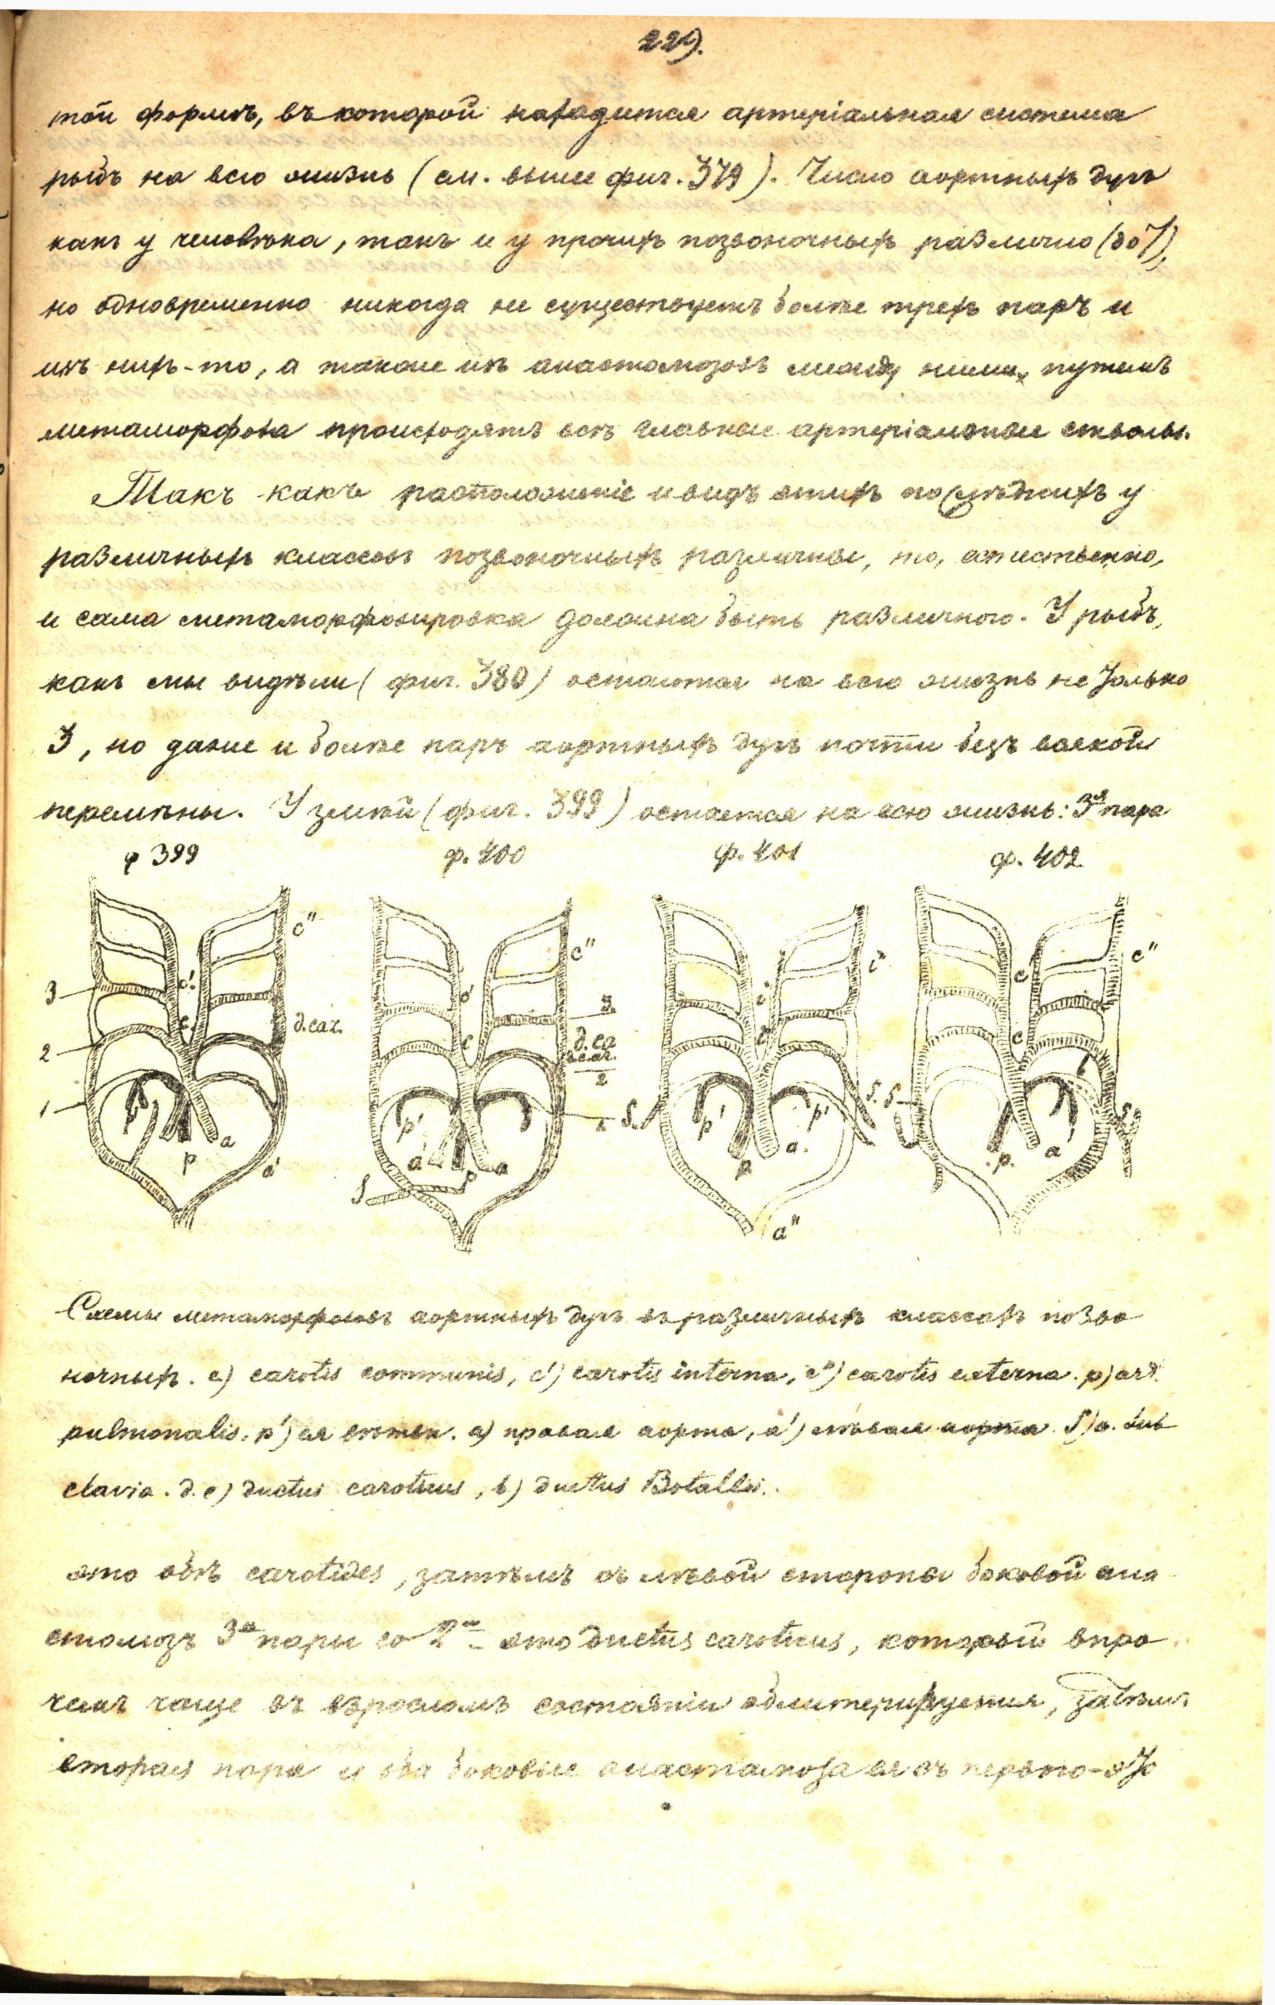 229.
той формѣ, въ которой находится артеріальная система
рыбъ на всю жизнь (см. выше фиг. 379). Число аортныхъ дугъ
какъ у человѣка, такъ и у прочихъ позвоночныхъ различно (до 7),
но одновременно никогда не существуетъ болѣе трехъ паръ и
изъ нихъ-то, а также изъ анастомозовъ между ними, путемъ
метаморфоза происходятъ всѣ главные артеріальные стволы.
Такъ какъ расположеніе и видъ этихъ послѣднихъ у
различныхъ классовъ позвоночныхъ различны, то, естественно,
и сама метаморфозировка должна быть различною. У рыбъ,
какъ мы видѣли (фиг. 380) остается на всю жизнь не только
3, но даже и болѣе паръ аортныхъ дугъ почти безъ всякой
перемѣны. У змѣй (фиг. 399) остается на всю жизнь: 3я пара
ф 399 ф. 400 ф. 401 ф. 402
c" c" c" c"
3 c' c' c' c
2 c д.car. c 3 д.са c c
1 p a a' p' a p a S 2 S. p' p a. p' a" S. p. a S
Схемы метаморфозовъ аортныхъ дугъ въ различныхъ классахъ позво
ночныхъ. c) carotis communis, c') carotis interna, c") carotis externa. p) art.
pulmonalis. p') ея вѣтви. a) правая аорта, a') лѣвая аорта. S) a. sub
clavia. д.c) ductus caroticus, b) ductus Botalli.
это обѣ carotides, затѣмъ съ лѣвой стороны боковой ана
стомозъ 3й пары со 2й – это ductus caroticus, который впро
чемъ чаще въ взросломъ состояніи облитерируется, затѣмъ
вторая пара и оба боковые анастомоза ея съ первою – это